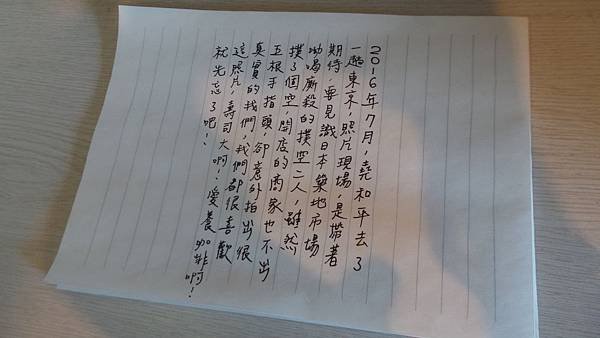 2016年7月,堯和平去了
一趟東京,照片現場,是帶著
期待,要見識日本築地市場
吆喝廝殺的撲空二人,雖然
撲了個空,開店的商家也不出
五根手指頭,卻意外拍出很
真實的我們,我們都很喜歡
這照片,壽司大啊!愛養咖啡啊!
就先忘了吧!